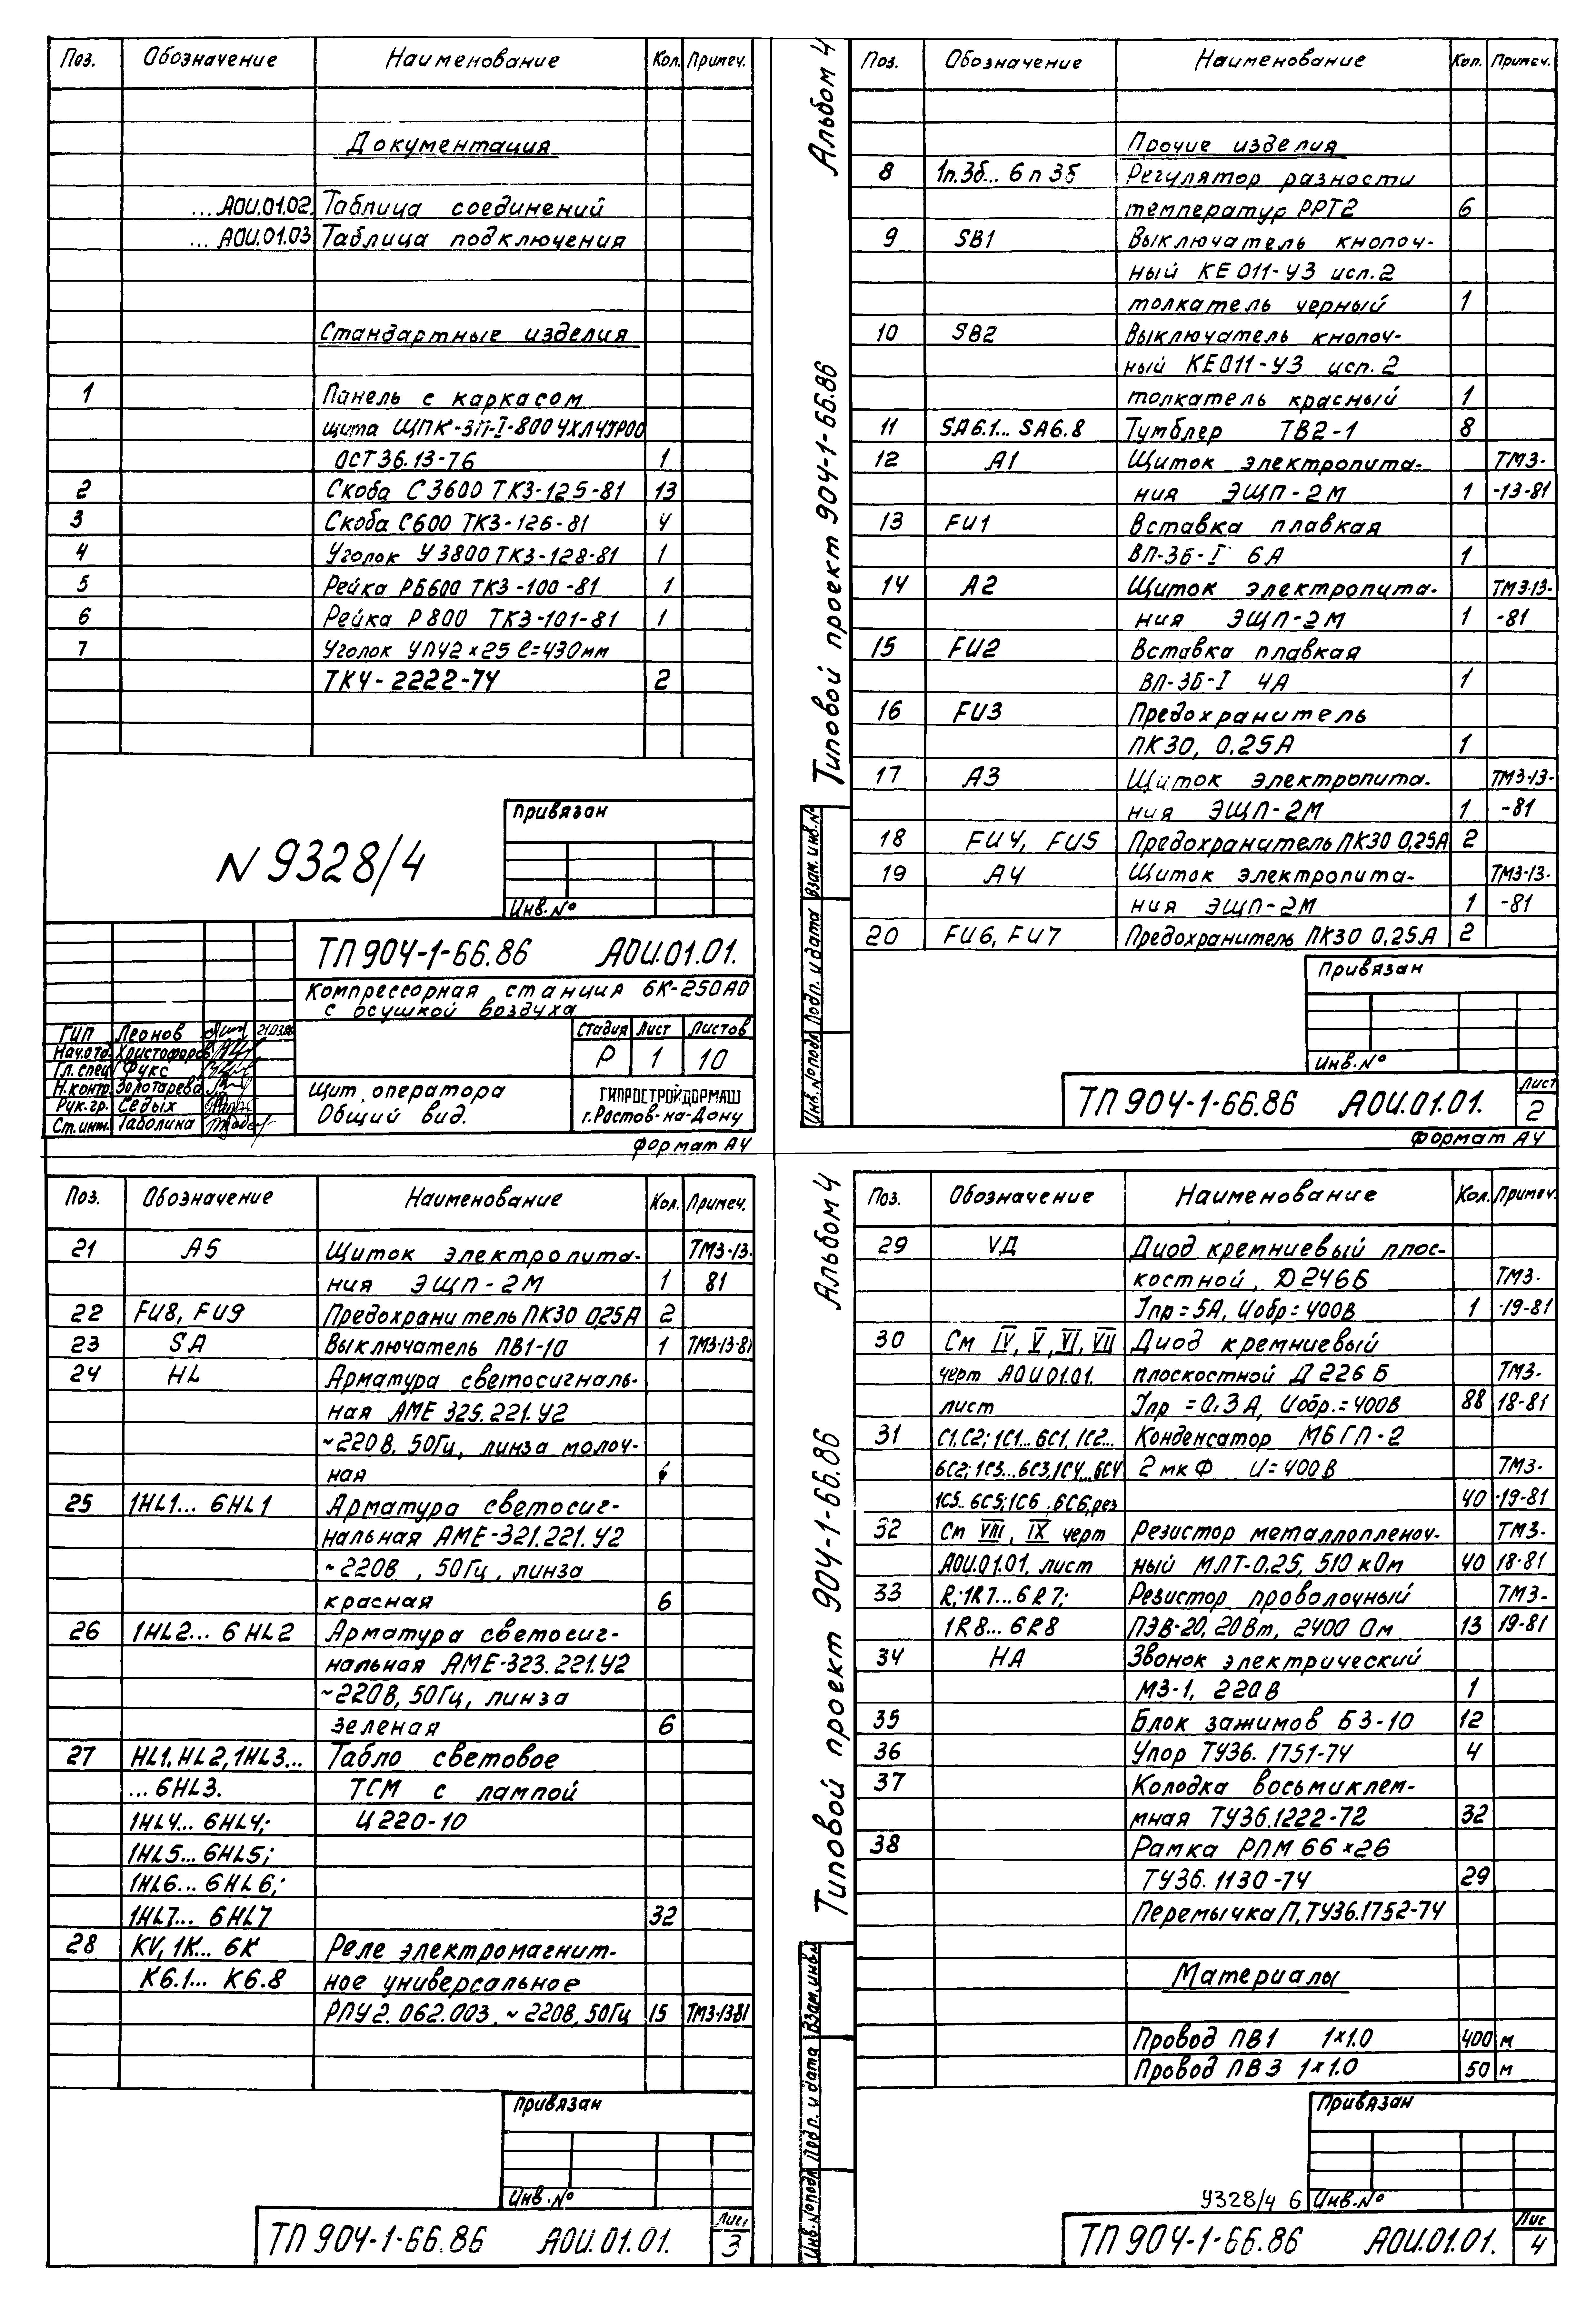 Поз. Обозначение Наименование Кол. Примеч.
Документация
...АОИ.01.02. Таблица соединений
...АОИ.01.03 Таблица подключения
Стандартные изделия
1 Панель с каркасом
щита ЩПК-3П-I-800 УХЛ4УР00
ОСТ 36.13-76 1
2 Скоба С3600 ТК3-125-81 13
3 Скоба С600 ТК3-126-81 4
4 Уголок У3800 ТК3-128-81 1
5 Рейка РБ600 ТК3-100-81 1
6 Рейка Р800 ТК3-101-81 1
7 Уголок УП42×25 ℓ=430мм
ТК4-2222-74 2
Привязан
N 9328/4
Инв.№
ТП 904-1-66.86 АОИ.01.01.
Компрессорная станция 6К-250А0
с осушкой воздуха
ГИП Леонов 21.03.86
Нач.отд. Христофоров
Гл. спец Фукс
Н.контр. Золотарева
Рук.гр. Седых
Ст.инж. Таболина
Стадия Лист Листов
Р 1 10
Щит оператора
Общий вид.
ГИПРОСТРОЙДОРМАШ
г.Ростов-на-Дону
Формат А4
Альбом 4
Типовой проект 904-1-66.86
Взам. инв.№
Подп. и дата
Инв.№ подл.
Поз. Обозначение Наименование Кол. Примеч.
Прочие изделия
8 1п.3б... 6п3б Регулятор разности
температур РРТ2 6
9 SB1 Выключатель кнопоч-
ный КЕ011-У3 исп.2
толкатель черный 1
10 SB2 Выключатель кнопоч-
ный КЕ011-У3 исп.2
толкатель красный 1
11 SA6.1... SA6.8 Тумблер ТВ2-1 8
12 А1 Щиток электропита- ТМ3-
ния ЭЩП-2М 1 -13-81
13 FU1 Вставка плавкая
ВП-3Б-I 6А 1
14 А2 Щиток электропита- ТМ3-13-
ния ЭЩП-2М 1 -81
15 FU2 Вставка плавкая
ВП-3Б-I 4А 1
16 FU3 Предохранитель
ПК30, 0,25А 1
17 А3 Щиток электропита- ТМ3-13-
ния ЭЩП-2М 1 -81
18 FU4, FU5 Предохранитель ПК30 0,25А 2
19 А4 Щиток электропита- ТМ3-13-
ния ЭЩП-2М 1 -81
20 FU6, FU7 Предохранитель ПК30 0,25А 2
Привязан
Инв.№
ТП 904-1-66.86 АОИ.01.01. Лист
2
Формат А4
Поз. Обозначение Наименование Кол. Примеч.
21 А5 Щиток электропита- ТМ3-13-
ния ЭЩП-2М 1 81
22 FU8, FU9 Предохранитель ПК30 0,25А 2
23 SA Выключатель ПВ1-10 1 ТМ3-13-81
24 HL Арматура светосигналь-
ная АМЕ 325.221.У2
~220В, 50Гц, линза молоч-
ная
25 1HL1... 6HL1 Арматура светосиг-
нальная АМЕ-321.221.У2
~220В, 50Гц, линза
красная 6
26 1HL2... 6HL2 Арматура светосиг-
нальная АМЕ-323.221.У2
~220В, 50Гц, линза
зеленая 6
27 HL1, HL2, 1HL3... Табло световое
...6HL3. ТСМ с лампой
1HL4... 6HL4; Ц220-10
1HL5... 6HL5;
1HL6... 6HL6;
1HL7... 6HL7 32
28 KV, 1К... 6К Реле электромагнит-
К6.1... К6.8 ное универсальное
РПУ2.062.003. ~220В, 50Гц 15 ТМ3-13-81
Привязан
Инв.№
ТП 904-1-66.86 АОИ.01.01. Лист
3
Альбом 4
Типовой проект 904-1-66.86
Взам.инв.№
Подп. и дата
Инв.№ подл.
Поз. Обозначение Наименование Кол. Примеч.
29 VД Диод кремниевый плос-
костной, Д246Б ТМ3-
Iпр=5А, Uобр=400В 1 -19-81
30 См IV, V, VI, VII Диод кремниевый
черт АОИ01.01. плоскостной Д226Б ТМ3-
лист Iпр=0.3А, Uобр.=400В 88 18-81
31 С1,С2; 1С1... 6С1, 1С2... Конденсатор МБГП-2
6С2; 1С3...6С3, 1С4...6С4 2мкФ U=400В ТМ3-
1С5..6С5; 1С6..6С6, рез 40 -19-81
32 См VIII, IX черт Резистор металлопленоч- ТМ3-
АОИ.01.01, лист ный МЛТ-0.25, 510 кОм 40 18-81
33 R; 1R7...6R7; Резистор проволочный ТМ3-
1R8... 6R8 ПЭВ-20, 20Вт, 2400 Ом 13 19-81
34 НА Звонок электрический
МЗ-1, 220В 1
35 Блок зажимов БЗ-10 12
36 Упор ТУ36.1751-74 4
37 Колодка восьмиклем-
мная ТУ36.1222-72 32
38 Рамка РПМ 66×26
ТУ36.1130-74 29
Перемычка П, ТУ36.1752-74
Материалы
Провод ПВ1 1×1.0 400 м
Провод ПВ3 1×1.0 50 м
Привязан
9328/4 6 Инв.№
ТП 904-1-66.86 АОИ.01.01. Лис
4